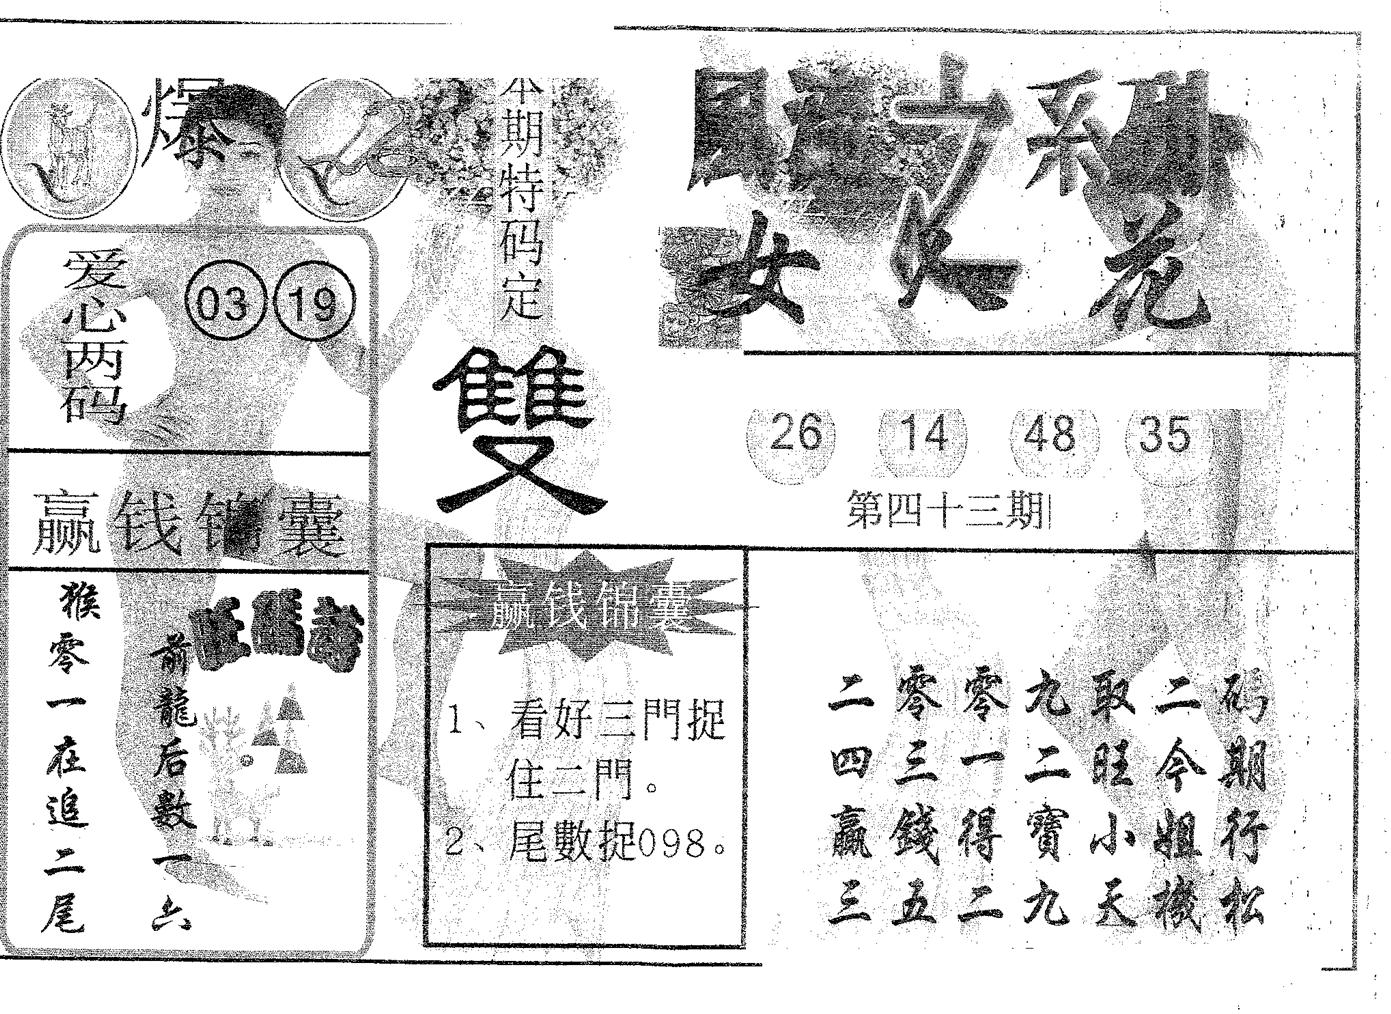 爆
本期特码定
雙
爱心两码
03 19
赢钱锦囊
猴零一在追二尾
前龍后數一六
旺碼詩
赢钱锦囊
1、看好三門捉
住二門。
2、尾數捉098。
之
女
花
26 14 48 35
第四十三期
二零零九取二码
四三一二旺今期
贏錢得寶小姐行
三五二九天機松